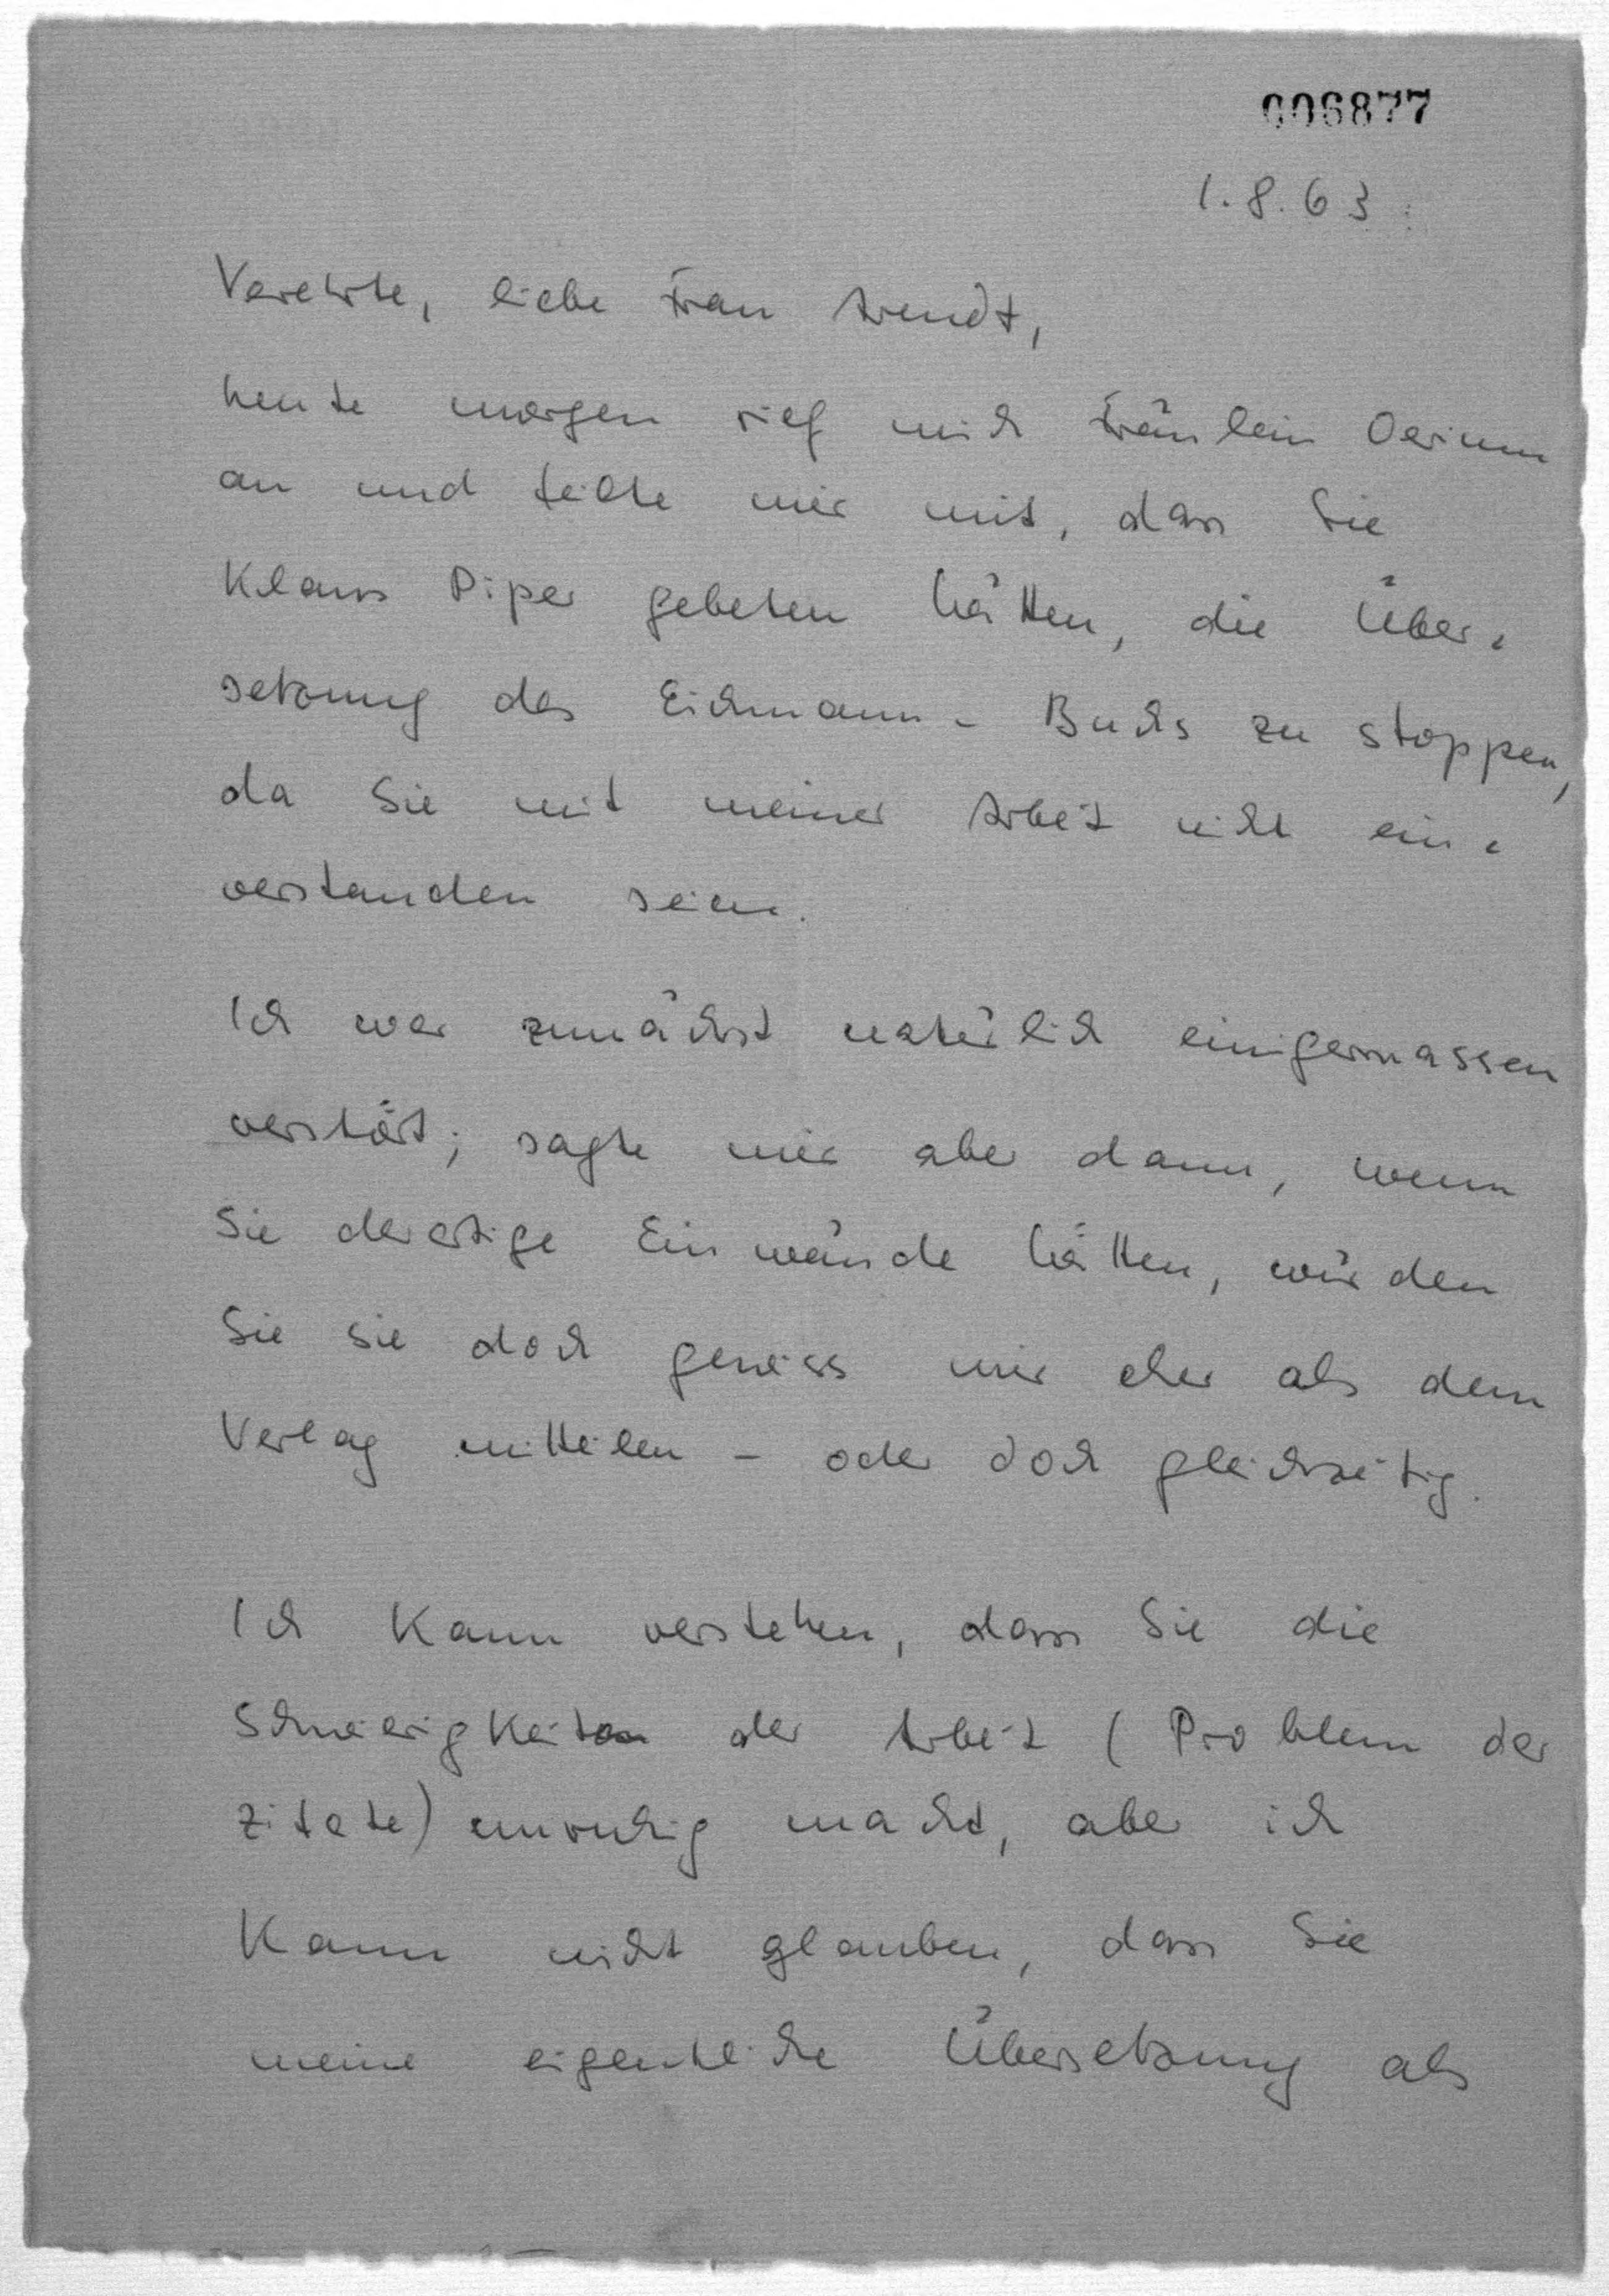 006877
1.8.63
Verehrte, liebe Frau Arendt,
heute morgen rief mich Fräulein Oerium
an und teilte mir mit, dass Sie
Klaus Piper gebeten hätten, die Über-
setzung des Eichmann-Buchs zu stoppen,
da Sie mit meiner Arbeit nicht ein-
verstanden seien.
Ich war zunächst natürlich einigermassen
verstört; sagte mir aber dann, wenn
Sie derartige Einwände hätten, würden
Sie sie doch gewiss mir eher als dem
Verlag mitteilen - oder doch gleichzeitig.
Ich kann verstehen, dass Sie die
Schwierigkeiten der Arbeit (Problem der
Zitate) unruhig macht, aber ich
kann nicht glauben, dass Sie
meine eigentliche Übersetzung als